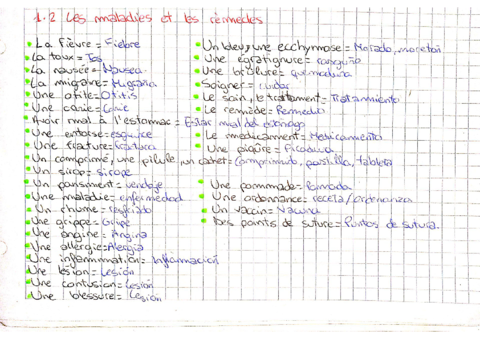 1.2 Les maladies et les remmedes
La fièvre = Fiebre
La toux = Tos
La nausée = Nausea
La migraine = Migraña
Une otite = Otitis
Une carie = Carie
Avoir mal à l'estomac = Estar mal del estomago
Une entorse = esguince
Une fracture = Fractura
Un comprimé, une pilule, un cachet = Comprimido, pastilla, tableta
Un sirop = sirope
Un pansiment = vendaje
Une maladie = enfermedad
Un rhume = resfriado
Une grippe = Gripe
Une angine = Angina
Une allergie = Alergia
Une inflammation = Inflamación
Une lésion = Lesión
Une contusion = Lesión
Une blessure = Lesión
Un bleu, une ecchymose = Morado, moretón
Une égratignure = rasguño
Une brûlure = quemadura
Soigner = cuidar
Le soin, le traitement = Tratamiento
Le remède = Remedio
Le medicamment = Medicamento
Une piqûre = Picadura
Une pommade = Pomada
Une ordonnance = receta/ordenanza
Un vaccin = Vacuna
Des points de suture = Puntos de sutura.